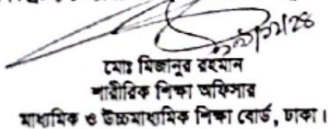 মোঃ মিজানুর রহমান
শারীরিক শিক্ষা অফিসার
মাধ্যমিক ও উচ্চমাধ্যমিক শিক্ষা বোর্ড, ঢাকা।